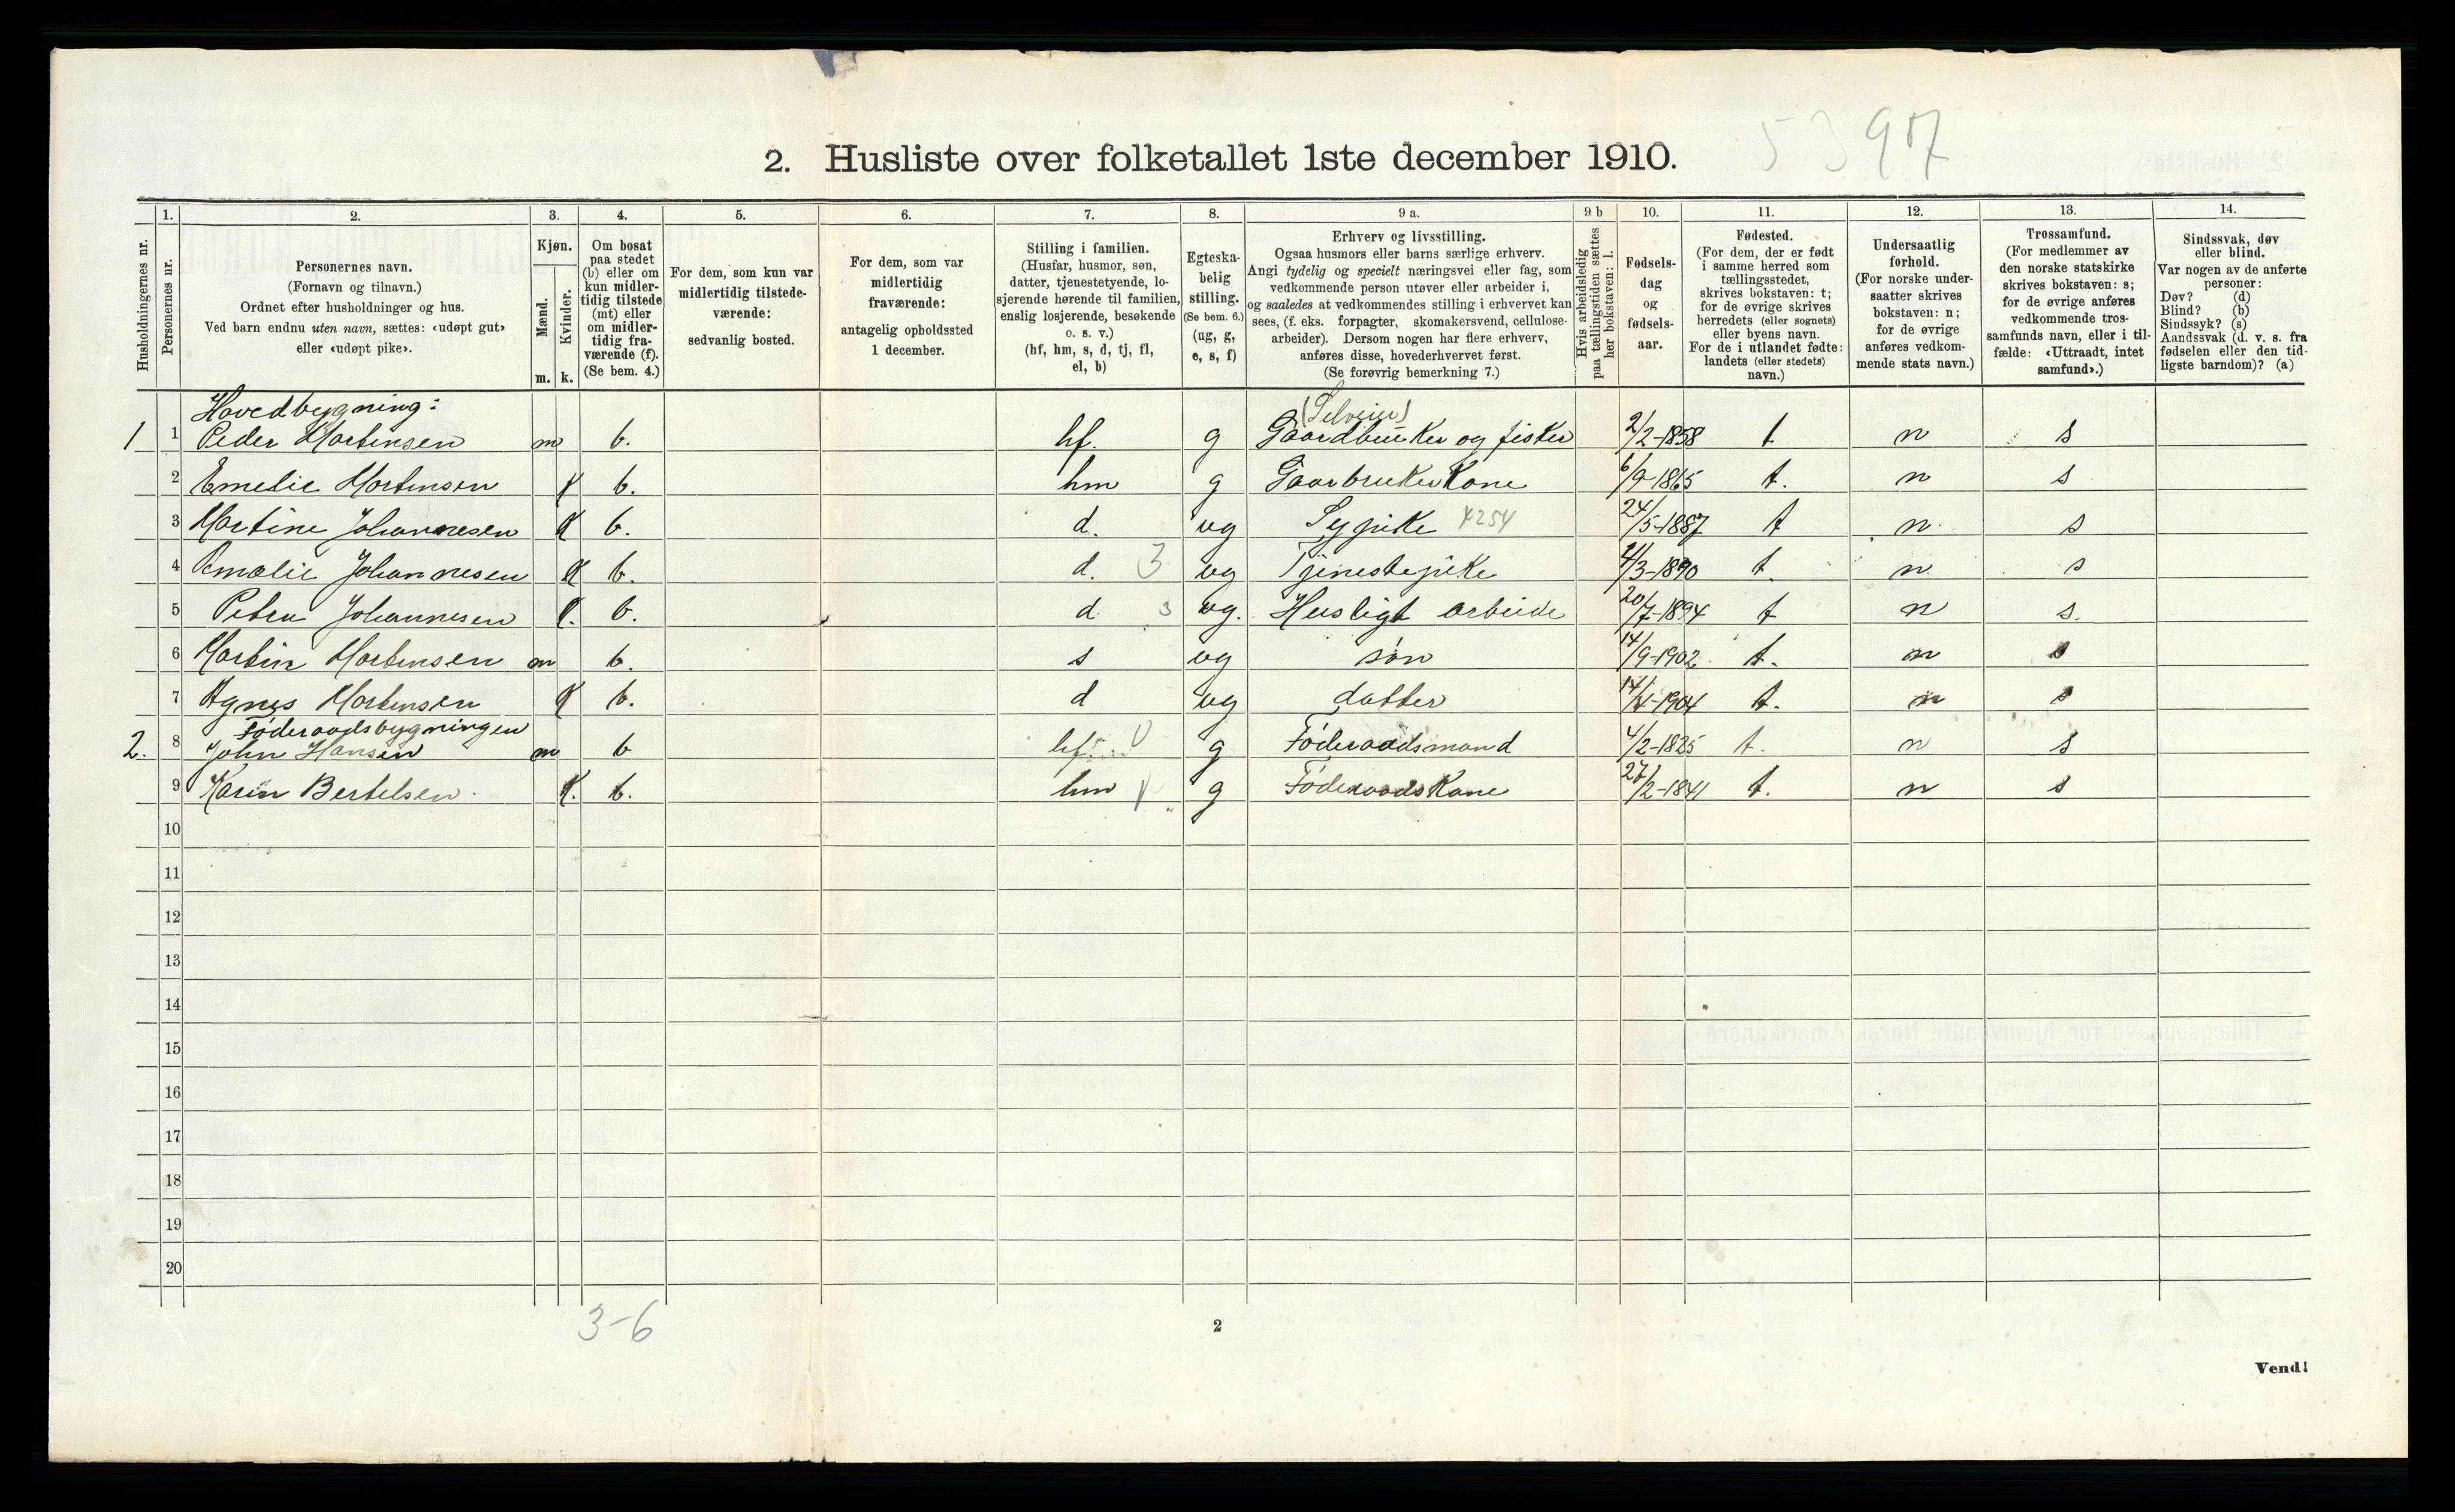 5397
2. Husliste over folketallet 1ste december 1910.
Husholdningernes nr.
1. Personernes nr.
2. Personernes navn.
(Fornavn og tilnavn.)
Ordnet efter husholdninger og hus.
Ved barn endnu uten navn, sættes: «udøpt gut»
eller «udøpt pike».
3. Kjøn.
Mænd. Kvinder.
m. k.
4. Om bosat
paa stedet
(b) eller om
kun midler-
tidig tilstede
(mt) eller
om midler-
tidig fra-
værende (f).
(Se bem. 4.)
5. For dem, som kun var
midlertidig tilstede-
værende:
sedvanlig bosted.
6. For dem, som var
midlertidig
fraværende:
antagelig opholdssted
1 december.
7. Stilling i familien.
(Husfar, husmor, søn,
datter, tjenestetyende, lo-
sjerende hørende til familien,
enslig losjerende, besøkende
o. s. v.)
(hf, hm, s, d, tj, fl,
el, b)
8. Egteska-
belig
stilling.
(Se bem. 6.)
(ug, g,
e, s, f)
9 a. Erhverv og livsstilling.
Ogsaa husmors eller barns særlige erhverv.
Angi tydelig og specielt næringsvei eller fag, som
vedkommende person utøver eller arbeider i,
og saaledes at vedkommendes stilling i erhvervet kan
sees, (f. eks. forpagter, skomakersvend, cellulose-
arbeider). Dersom nogen har flere erhverv,
anføres disse, hovederhvervet først.
(Se forøvrig bemerkning 7.)
9 b Hvis arbeidsledig
paa tællingstiden sættes
her bokstaven: l.
10. Fødsels-
dag
og
fødsels-
aar.
11. Fødested.
(For dem, der er født
i samme herred som
tællingsstedet,
skrives bokstaven: t;
for de øvrige skrives
herredets (eller sognets)
eller byens navn.
For de i utlandet fødte:
landets (eller stedets)
navn.)
12. Undersaatlig
forhold.
(For norske under-
saatter skrives
bokstaven: n;
for de øvrige
anføres vedkom-
mende stats navn.)
13. Trossamfund.
(For medlemmer av
den norske statskirke
skrives bokstaven: s;
for de øvrige anføres
vedkommende tros-
samfunds navn, eller i til-
fælde: «Uttraadt, intet
samfund».)
14. Sindssvak, døv
eller blind.
Var nogen av de anførte
personer:
Døv? (d)
Blind? (b)
Sindssyk? (s)
Aandssvak (d. v. s. fra
fødselen eller den tid-
ligste barndom)? (a)
Hovedbygning: (Selveier)
1 1 Peder Mortensen m b. hf. g Gaardbruker og fisker 2/2-1858 t n s
2 Emelie Mortensen k b. hm g Gaarbrukerkone 6/9-1865 t. n s
3 Martine Johannesen k b. d. ug Sypike 4254 24/5-1887 t n. s
4 Amalie Johannesen k b. d. 3 ug Tjenestepike /3-1890 t. n. s
5 Petra Johannesen k. b. d. 3 ug. Husligt arbeide 20/7-1894 t n s.
6 Martin Mortensen m b. s ug søn 14/9-1902 t. n s
7 Agnes Mortensen k b. d ug datter 14/4-1904 t. n s
Føderaadsbygningen
2. 8 John Hansen m b hf. g Føderaadsmand 4/2-1825 t. n s
9 Karen Bertelsen. k. b. hm g Føderaadskone 27/2-1841 t. n s
10
11
12
13
14
15
16
17
18
19
20
3-6
2
Vend!